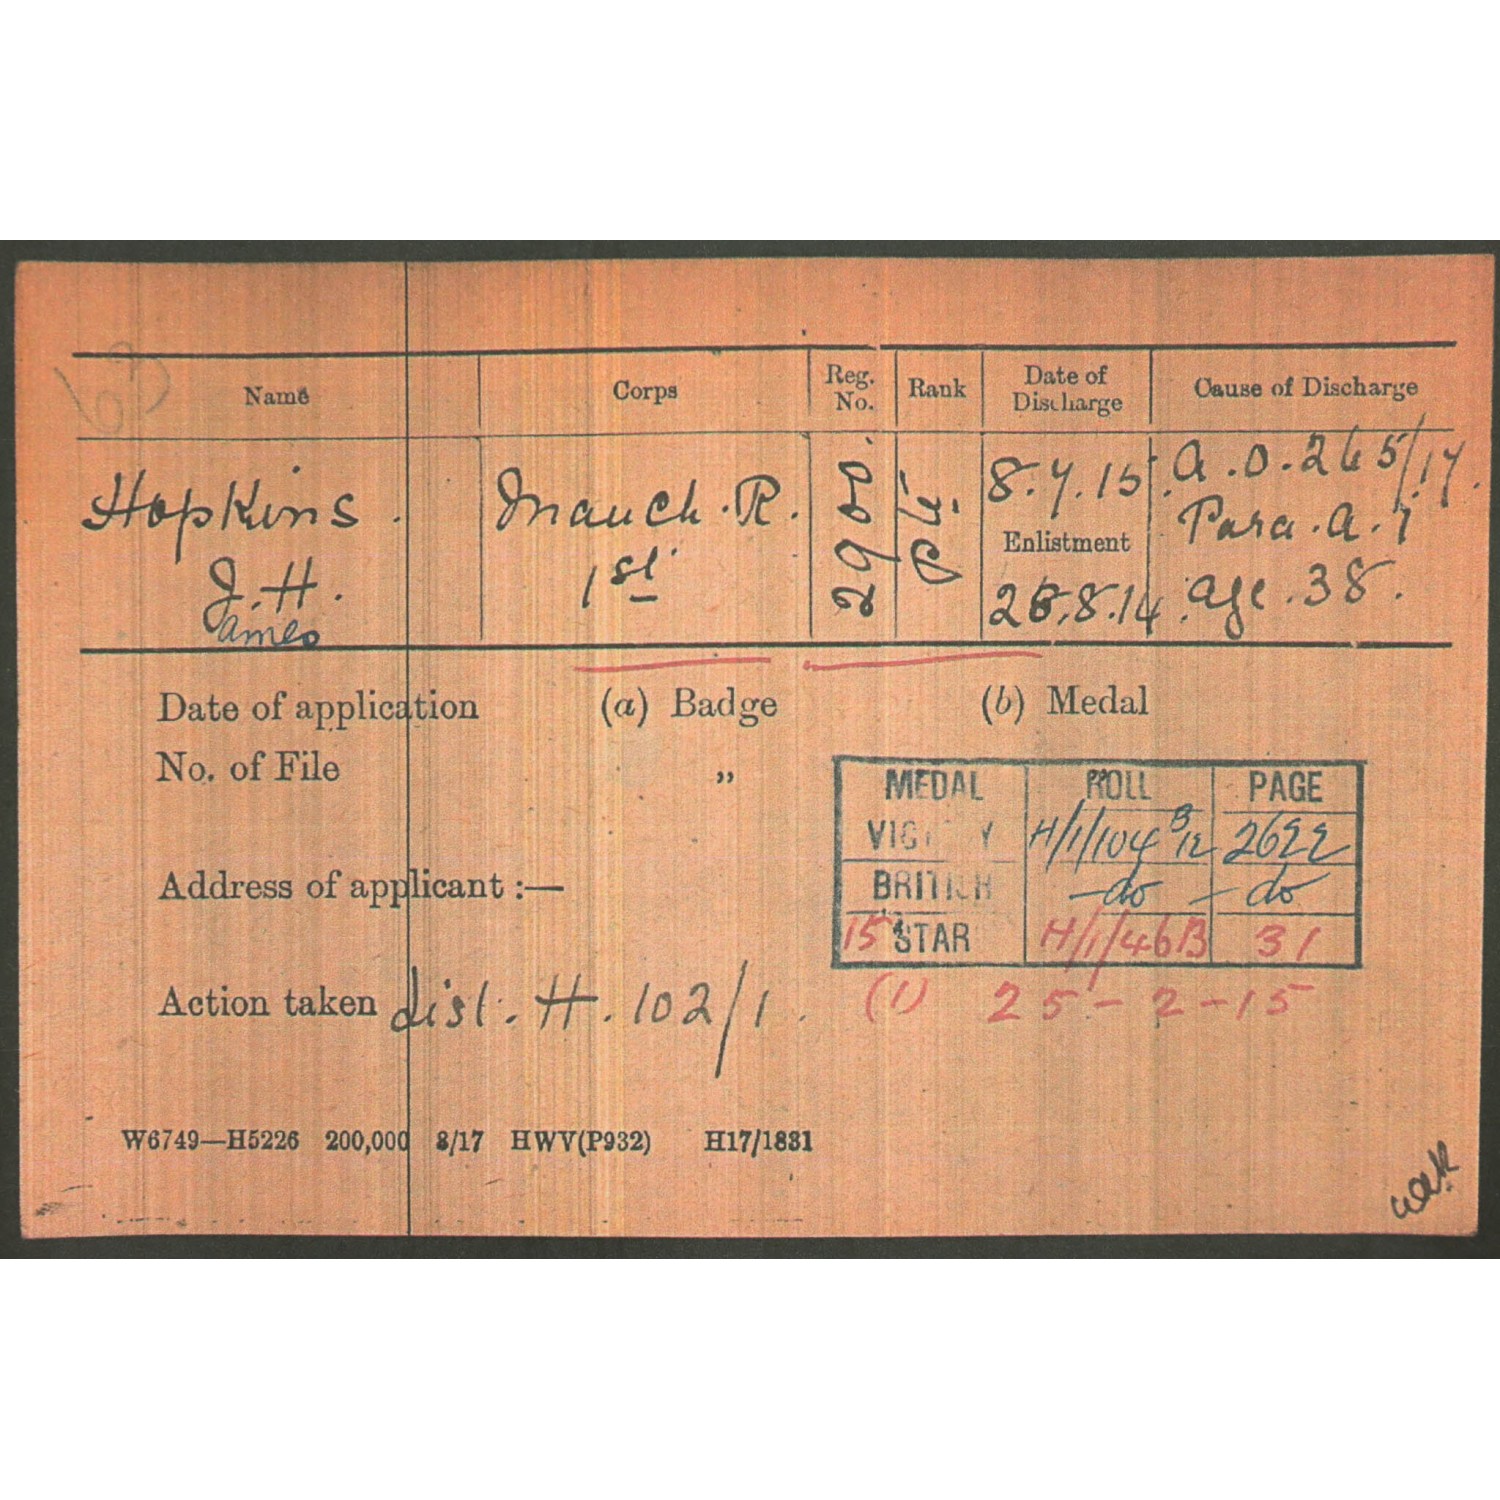 Name Corps Reg. No. Rank Date of Discharge Cause of Discharge
Hopkins. Manch. R. 2900. Pte. 8.7.15. A.O. 265/17.
J. H. 1st Enlistment Para. a. 1
ames 28.8.14. age. 38.
Date of application (a) Badge (b) Medal
No. of File "
MEDAL ROLL PAGE
VICTORY H/1/104 B12 2622
Address of applicant :—
BRITISH —do— do
15 STAR H/1/46B 31
Action taken dist. H. 102/1. (1) 25-2-15
W6749—H5226 200,000 8/17 HWV(P932) H17/1831